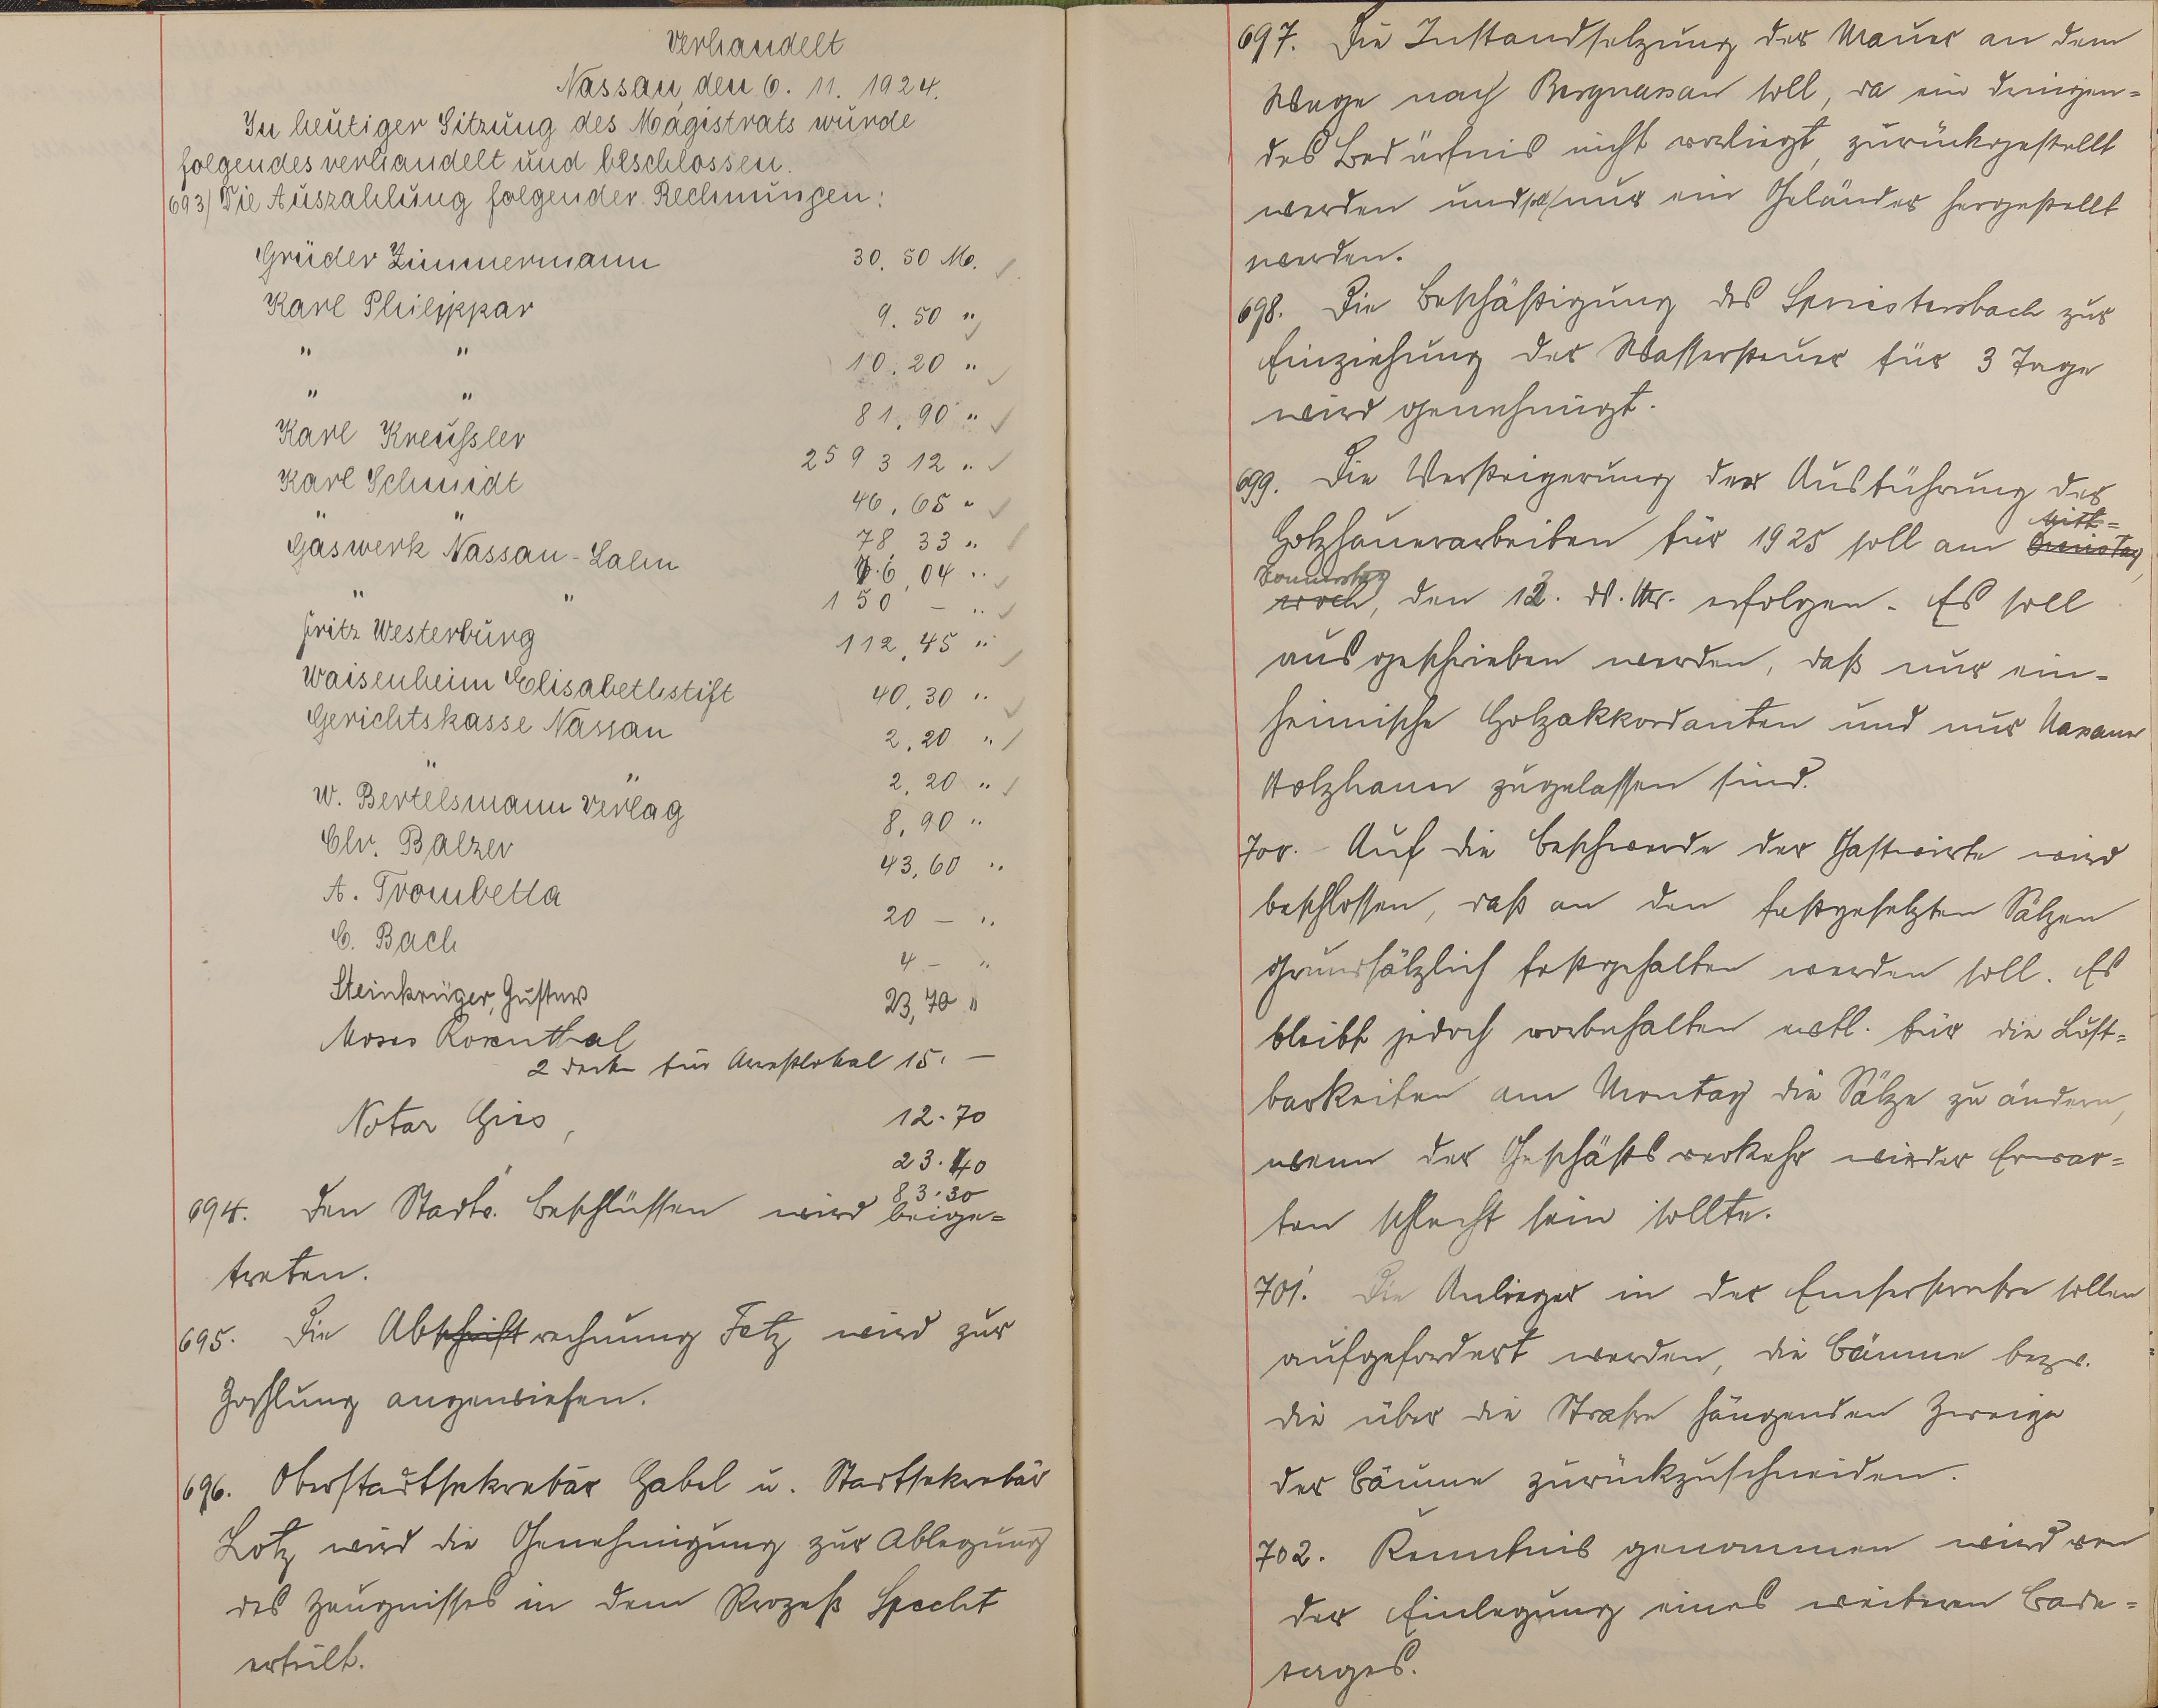 Verhandelt
Nassau, den 6. 11. 1924.
In heutiger Sitzung des Magistrats wurde
folgendes verhandelt und beschlossen.
693) Die Auszahlung folgender Rechnungen:
Grüder Zimmermann 30.50 M.
Karl Philippar 9.50 "
" " 10.20 "
" " 81,90 "
Karl Kreussler 259312 "
Karl Schmidt 46,65 "
" " 78,33 "
Gaswerk Nassau-Lahn 6,04 "
" " 150 – "
Fritz Westerburg 112,45 "
Waisenheim Elisabethstift 40,30 "
Gerichtskasse Nassau 2,20 "
" " 2,20 "
W. Bertelsmann Verlag 8,90 "
Chr. Balzer 43,60 "
A. Trombetta 20 – "
C. Bach 4 – "
Steinkrüger, Gustav 23,70 "
Moses Rosenthal
2 Decken für Arrestlokal 15. –
Notar Giro, 12.70
23.40
83.30
694. Den Stadtv. Beschlüssen wird beige-
treten.
695. Die Abschriftrechnung Fetz wird zur
Zahlung angewiesen.
696. Oberstadtsekretär Gabel u. Stadtsekretär
Lotz wird die Genehmigung zur Ablegung
des Zeugnisses in dem Prozeß Specht
erteilt.
697. Die Instandsetzung der Mauer an dem
Wege nach Bergnassau soll, da ein dringen-
des Bedürfnis nicht vorliegt, zurückgestellt
werden und soll nur ein Geländer hergestellt
werden.
698. Die Beschäftigung des Spriestersbach zur
Einziehung der Wassersteuer für 3 Tage
wird genehmigt.
699. Die Versteigerung der Ausführung der
Holzhauerarbeiten für 1925 soll am Dienstag Mitt-
woch Donnerstag, den 12. d. Mts. erfolgen. Es soll
ausgeschrieben werden, daß nur ein-
heimische Holzakkordanten und nur Nassauer
Holzhauer zugelassen sind.
700. Auf die Beschwerde der Gastwirte wird
beschlossen, daß an den festgesetzten Sätzen
grundsätzlich festgehalten werden soll. Es
bleibt jedoch vorbehalten evtl. für die Lust-
barkeiten am Montag die Sätze zu ändern,
wenn der Geschäftsverkehr wieder Erwar-
ten schlecht sein sollte.
701. Die Anlieger in der Emserstraße sollen
aufgefordert werden, die Bäume bezw.
die über die Straße hängenden Zweige
der Bäume zurückzuschneiden.
702. Kenntnis genommen wird von
der Einlegung eines weiteren Bade-
tages.